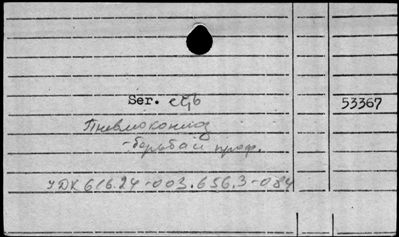 Ser. 53367
Пневмокониоз
-борьба и проф.
УДК 616.24-003.656.3-084